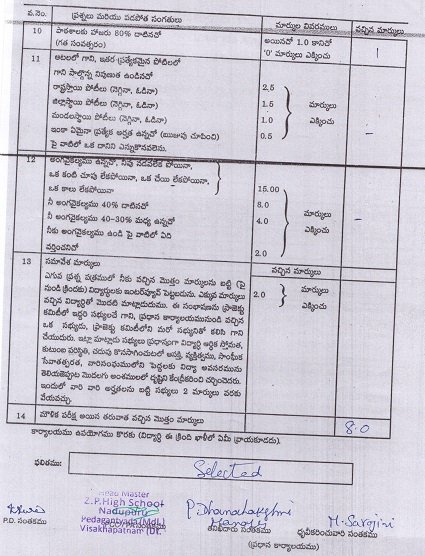 వ.నెం. ప్రశ్నలు మరియు పడపోత సంగతులు మార్కుల వివరములు వచ్చిన మార్కులు
10 పాఠశాలకు హాజరు 80% దాటినచో అయినచో 1.0 కానిచో 1
(గత సంవత్సరం) '0' మార్కులు ఎక్కించు
11 ఆటలలో గాని, ఇతర ప్రత్యేకమైన పోటీలలో
గాని పాల్గొన్న నిపుణత ఉండినచో
రాష్ట్రస్థాయి పోటీలు (నెగ్గినా, ఓడినా) 2.5
జిల్లాస్థాయి పోటీలు (నెగ్గినా, ఓడినా) 1.5 మార్కులు
మండలస్థాయి పోటీలు (నెగ్గినా, ఓడినా) 1.0 ఎక్కించు
ఇంకా ఏమైనా ప్రత్యేక అర్హత ఉన్నచో (ఋజువు చూపించి) 0.5 –
పై వాటిలో ఒక దానిని ఎన్నుకొనవలెను.
12 అంగవైకల్యము ఉన్నచో, నీవు నడవలేక పోయినా,
ఒక కంటి చూపు లేకపోయినా, ఒక చేయి లేకపోయినా,
ఒక కాలు లేకపోయినా 15.00
నీ అంగవైకల్యము 40% దాటినచో 8.0 మార్కులు
నీ అంగవైకల్యము 40-30% మధ్య ఉన్నచో 4.0 ఎక్కించు –
నీకు అంగవైకల్యము ఉండి పై వాటిలో ఏది
వర్తించనిచో 2.0
13 సమావేశ మార్కులు వచ్చిన మార్కులు
ఎగువ ప్రశ్న పత్రములో నీకు వచ్చిన మొత్తం మార్కులను బట్టి (పై
నుండి క్రిందకు) విద్యార్థులను ఇంటర్వ్యూకి పెట్టబడును. ఎక్కువ మార్కులు 2.0 మార్కులు
వచ్చిన విద్యార్థితో మొదటి మాట్లాడుదుము. ఈ సంభాషణను ప్రాజెక్టు ఎక్కించు
కమిటీలో ఇద్దరి సభ్యులచే గాని, ప్రధాన కార్యాలయమునుండి వచ్చిన
ఒక సభ్యుడు, ప్రాజెక్టు కమిటీలోని మరో సభ్యునితో కలిసి గాని
చేయుదురు. ఇట్లా మాట్లాడు సభ్యులు ప్రధానంగా విద్యార్థి ఆర్థిక స్తోమత,
కుటుంబ పరిస్థితి, చదువు కొనసాగించుటలో ఆసక్తి, వ్యక్తిత్వము, సాంఘిక
ఇందులో వారి వారి అర్హతలను బట్టి సభ్యులు 2 మార్కులు వరకు
వేయవచ్చు.
14 మౌళిక పరీక్ష అయిన తరువాత వచ్చిన మొత్తం మార్కులు 8.0
కార్యాలయము ఉపయోగము కొరకు (విద్యార్థి ఈ క్రింది ఖాళీలో ఏమీ వ్రాయకూడదు).
ఫలితము: Selected
Head Master
Z.P.High School
Nadupuru
Pedagantyada (Mdl)
Visakhapatnam (Dt.
P. Dhanalakshmi
M. Sarojini
P.D. సంతకము
ధృవీకరించువారి సంతకము
(ప్రధాన కార్యాలయము)